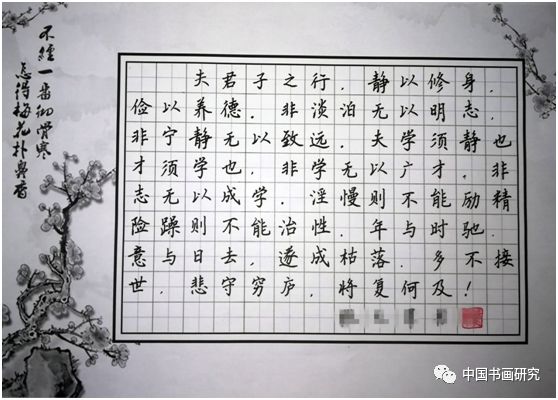 不經一番彻骨寒
怎得梅花扑鼻香
夫君子之行，静以修身，
俭以养德，非淡泊无以明志，
非宁静无以致远，夫学须静也
才须学也，非学无以广才，非
志无以成学，淫慢则不能励精
险躁则不能治性，年与时驰，
意与日去，遂成枯落，多不接
世，悲守穷庐，将复何及！
中国书画研究